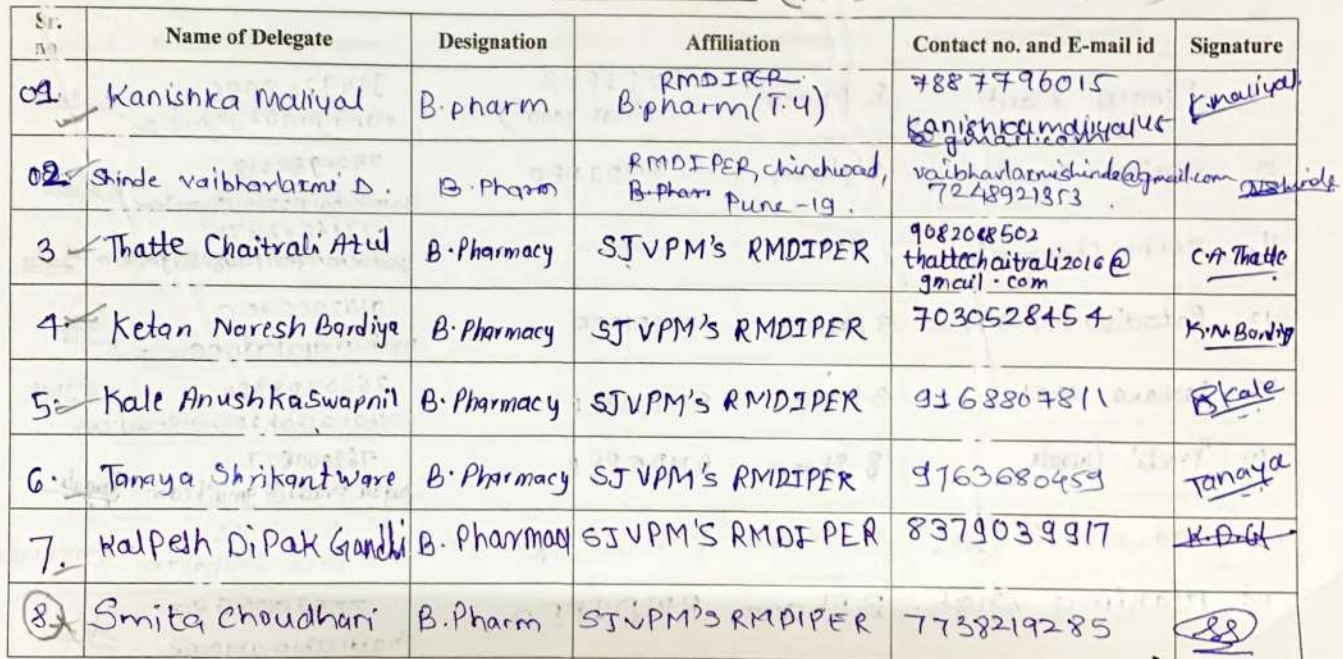 Sr. no Name of Delegate Designation Affiliation Contact no. and E-mail id Signature
01. Kanishka Maliyal B.pharm RMDIPER B.pharm(T.Y) 7887796015 K.maliyal
@gmail.com
02. Shinde vaibhavlaxmi D. B.Pharm RMDIPER, chinchwad, B.Pharm Pune-19. vaibhavlaxmishinde@gmail.com 7248921353
3 Thatte Chaitrali Atul B.Pharmacy SJVPM's RMDIPER 9082088502 thattechaitrali2016@gmail.com C.A. Thatte
4. Ketan Naresh Bardiya B.Pharmacy SJVPM's RMDIPER 7030528454 K.N.Bardiya
5. Kale Anushka Swapnil B.Pharmacy SJVPM's RMDIPER 9168807811 Kale
6. Tanaya Shrikant Ware B.Pharmacy SJVPM's RMDIPER 9763680459 Tanaya
7. Kalpesh Dipak Gandhi B.Pharmacy SJVPM'S RMDIPER 8379039917 K.D.G
8. Smita Choudhari B.Pharm SJVPM's RMDIPER 7738219285